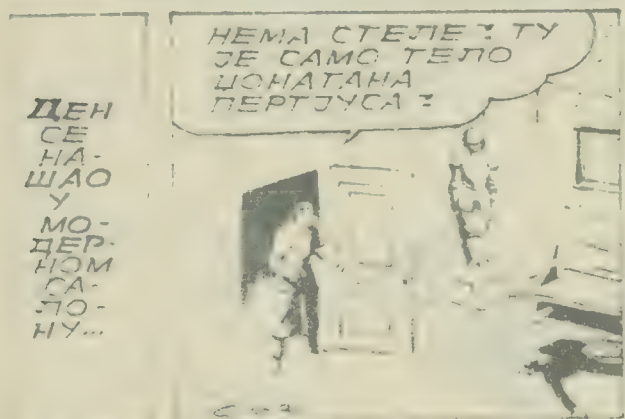 ДЕН
СЕ
НА-
ШАО
У
МО-
ДЕРН-
НОМ
СА-
ЛО-
НУ...
НЕМА СТЕЛЕ! ТУ
ЈЕ САМО ТЕЛО
ЏОНАТАНА
ПЕРТЈУСА!